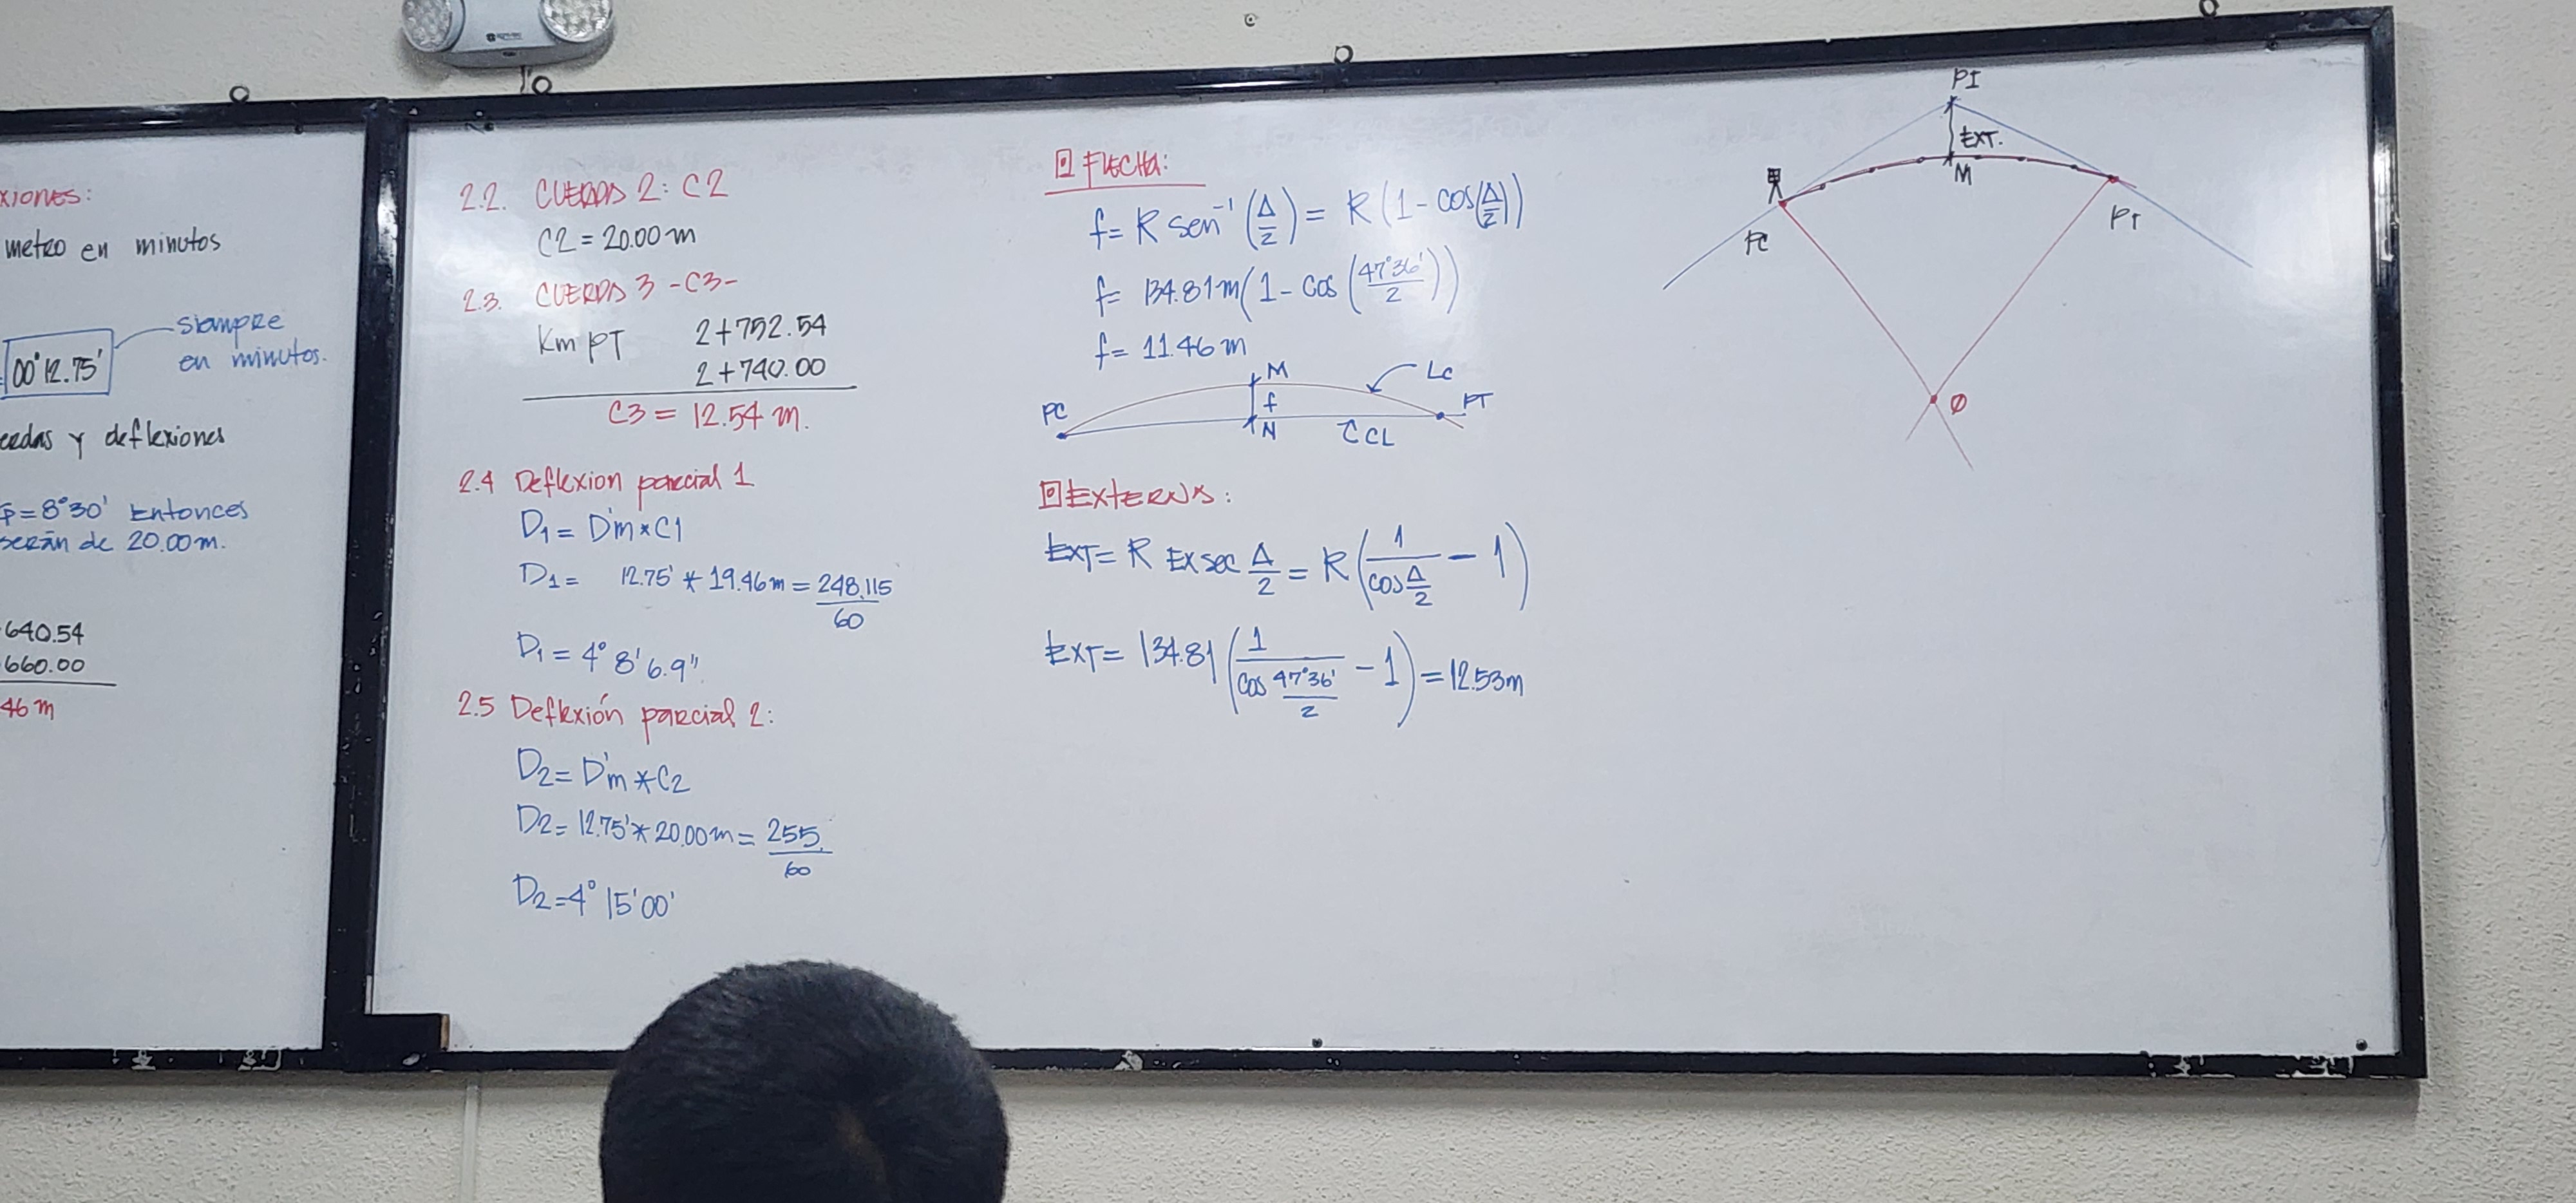 xiones:
metro en minutos
00°12.75'
siempre
en minutos.
y deflexiones
= 8°30' Entonces
serán de 20.00 m.
640.54
660.00
46 m
2.2. CUERDA 2: C2
C2 = 20.00 m
2.3. CUERDA 3 -C3-
Km PT 2+752.54
2+740.00
C3 = 12.54 m.
2.4 Deflexion parcial 1
D1 = D'm * C1
D1 = 12.75' * 19.46 m = 248.115 / 60
D1 = 4° 8' 6.9"
2.5 Deflexión parcial 2:
D2 = D'm * C2
D2 = 12.75' * 20.00 m = 255. / 60
D2 = 4° 15' 00'
FLECHA:
f = R sen⁻¹ (Δ/2) = R (1 - cos(Δ/2))
f = 134.81 m (1 - cos (47°36'/2))
f = 11.46 m
M
Lc
PC
f
PT
N
CCL
EXTERNA:
EXT = R EXsec Δ/2 = R (1/cos Δ/2 - 1)
EXT = 134.81 (1/cos 47°36'/2 - 1) = 12.53 m
PI
EXT.
M
PC
PT
O